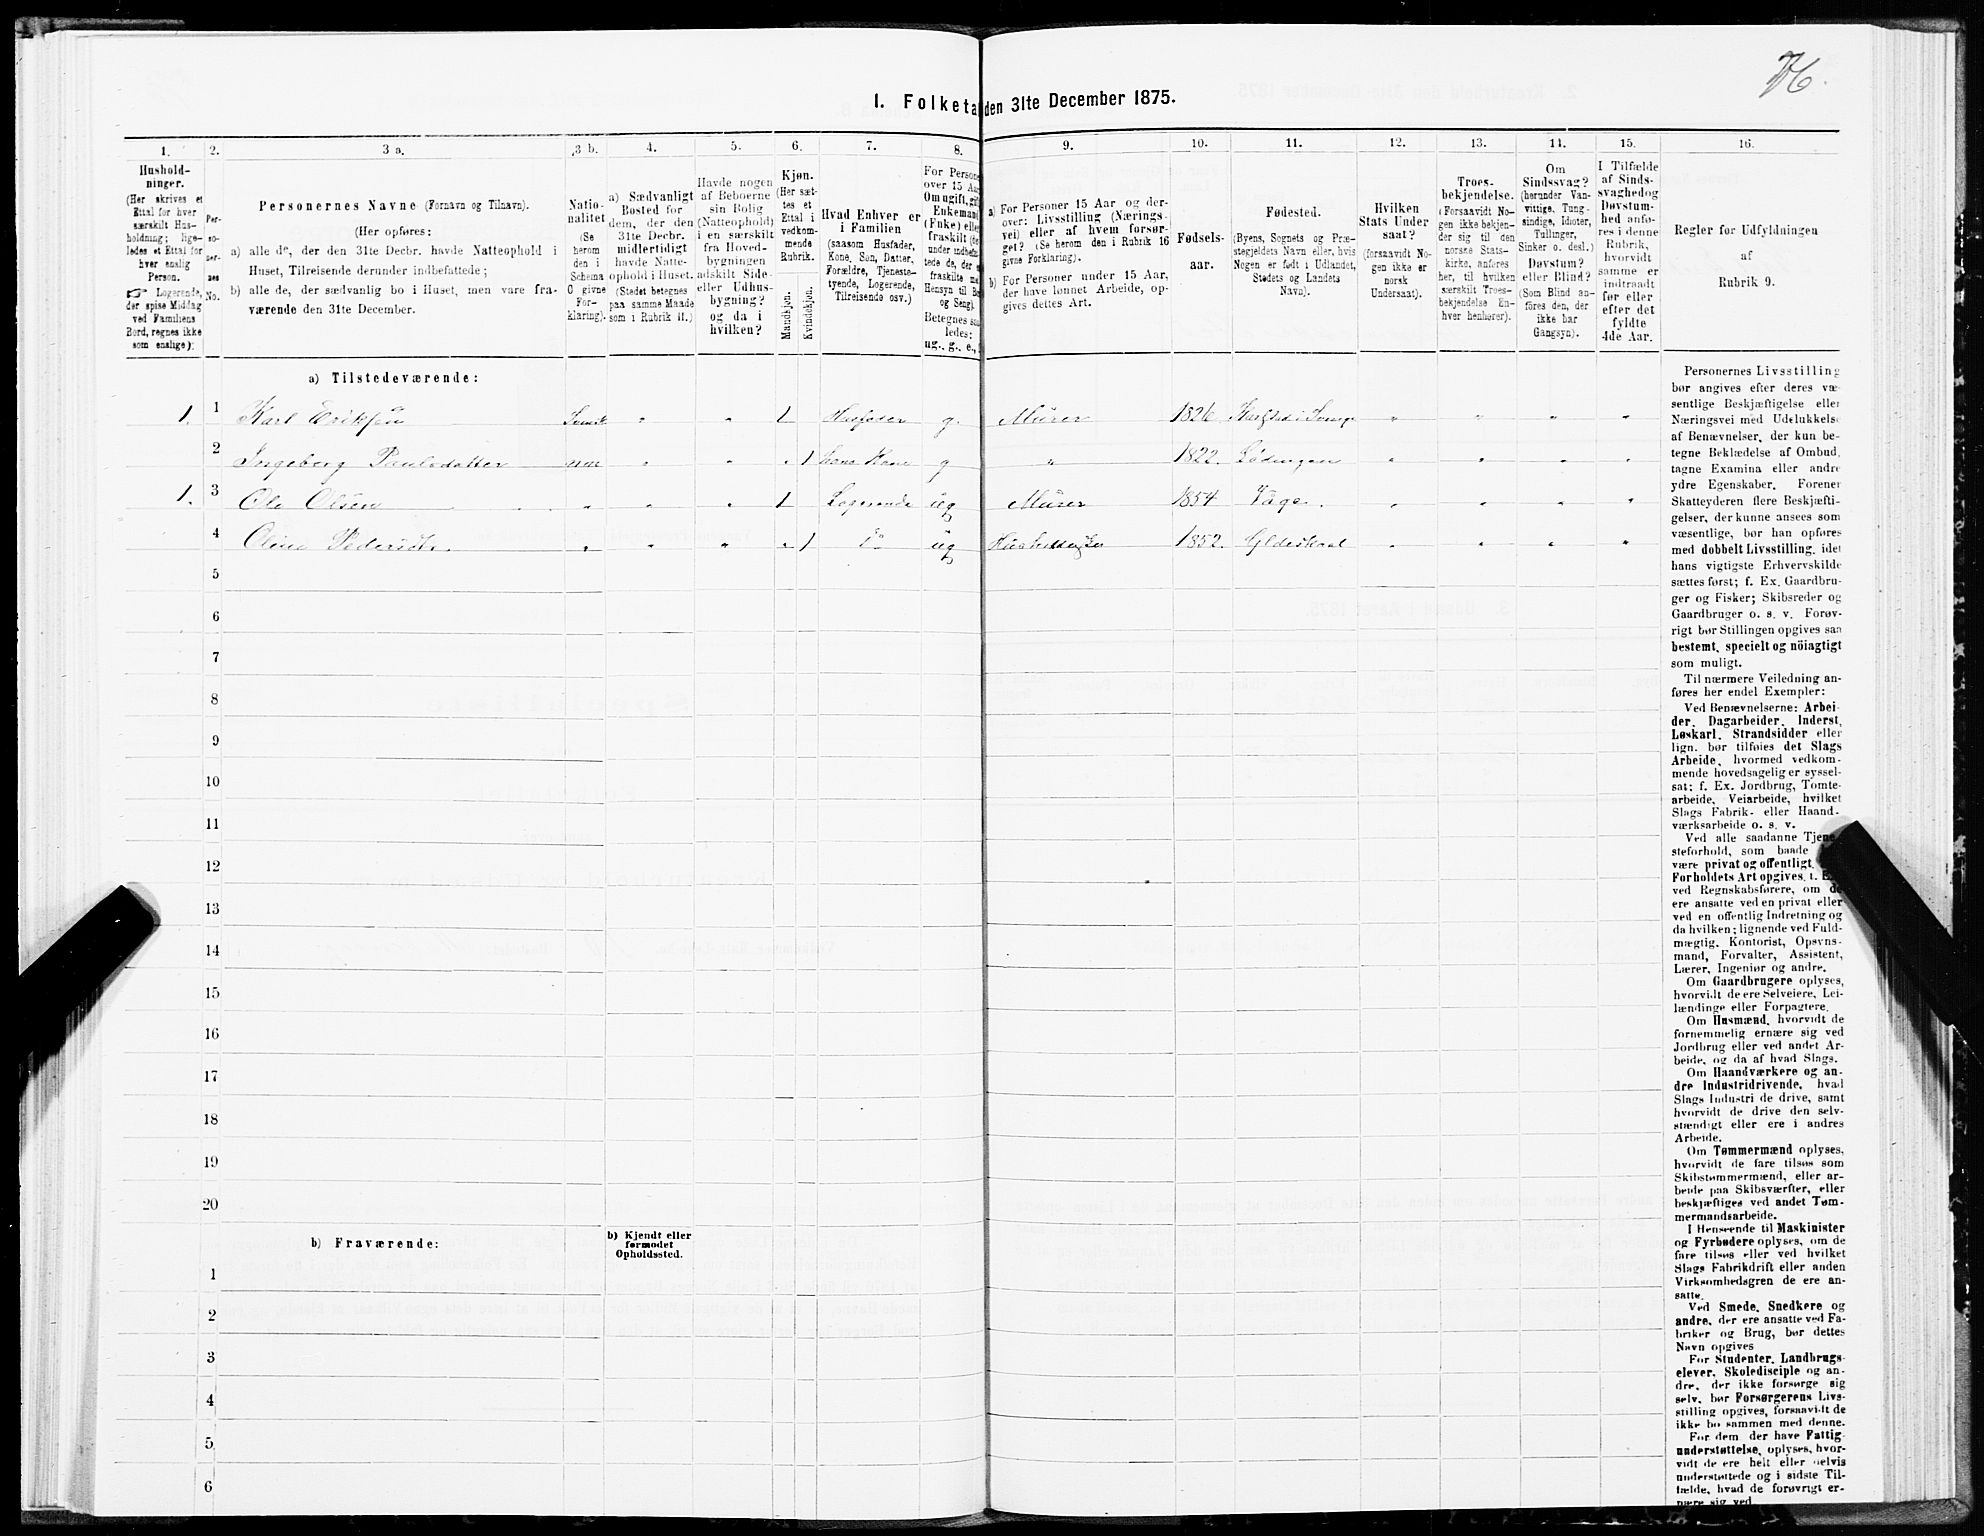 I. Folketa den 31te December 1875.
1.
Hushold-
ninger.
(Her skrives et
Ettal for hver
særskilt Hus-
holdning; lige-
ledes et Ettal for
hver enslig
Person.
☞ Logerende,
der spise Middag
ved Familiens
Bord, regnes ikke
som enslige);
2.
Per-
so-
per-
nes
No.
3 a.
Personernes Navne (Fornavn og Tilnavn).
(Her opføres:
a) alle de, der den 31te Decbr. havde Natteophold i
Huset, Tilreisende derunder indbefattede;
b) alle de, der sædvanlig bo i Huset, men vare fra-
værende den 31te December.
3 b.
Natio-
nalitet
(Se
herom
den i
Schema
O givne
For-
klaring).
4.
a) Sædvanligt
Bosted for
dem, der den
31te Decbr.
midlertidigt
havde Natte-
ophold i Huset.
(Stedet betegnes
paa samme Maade
som i Rubrik 11.)
5.
Havde nogen
af Beboerne
sin Bolig
(Natteophold)
i en særskilt
fra Hoved-
bygningen
adskilt Side-
eller Udhus-
bygning?
og da i
hvilken?
6.
Kjøn.
(Her sæt-
tes et
Ettal i
vedkom-
mende
Rubrik.
Mandkjøn.
Kvindekjøn.
7.
Hvad Enhver er
i Familien
(saasom Husfader,
Kone, Søn, Datter,
Forældre, Tjeneste-
tyende, Logerende,
Tilreisende osv.)
8.
For Persone
over 15 Aar
Om ugift, gift
Enkemand
(Enke) eller
fraskilt
under indbefat-
tede de, der
fraskilte me
Hensyn til Bo
og Seng).
Betegnes saa
ledes:
ug., g., e.,
9.
a) For Personer 15 Aar og der-
over: Livsstilling (Nærings-
vei) eller af hvem forsør-
get? (Se herom den i Rubrik 16
givne Forklaring).
b) For Personer under 15 Aar,
der have lønnet Arbeide, op-
gives dettes Art.
10.
Fødsels-
aar.
11.
Fødested.
(Byens, Sognets og Præ-
stegjeldets Navn eller, hvis
Nogen er født i Udlandet,
Stedets og Landets
Navn).
12.
Hvilken
Stats Under
saat?
(forsaavidt No-
gen ikke er
norsk
Undersaat).
13.
Troes-
bekjendelse.
(Forsaavidt No-
gen ikke bekjen-
der sig til den
norske Stats-
kirke, anføres
her, til hvilken
særskilt Troes-
bekjendelse En-
hver henhører).
14.
Om
Sindssvag?
(herunder Van-
vittige, Tung-
sindige, Idioter,
Tullinger,
Sinker o. desl.)
Døvstum?
eller Blind?
(Som Blind an-
føres den, der
ikke har
Gangsyn).
15.
I Tilfælde
af Sinds-
svaghed og
Døvstum-
hed anfø-
res i denne
Rubrik,
hvorvidt
samme er
indtraadt
før eller
efter det
fyldte
4de Aar.
16.
Regler for Udfyldningen
af
Rubrik 9.
a) Tilstedeværende:
1. 1 Karl Eriksen Svensk " " 1 Husfader g. Murer 1826 Karlstad i Sverige " " " "
2 Ingeberg Paulsdatter " " " 1 hans Kone g " 1822. Lødingen " " " "
1. 3 Ole Olsen " " " 1 Logerende ug Murer 1854 Vaage. " " " "
4 Oline Pedersdtr. " " " " 1 Do ug 1852. Gildeskaal " " " "
5
6
7
8
9
10
11
12
13
14
15
16
17
18
19
20
b) Fraværende:
b) Kjendt eller
formodet
Opholdssted.
1
2
3
4
5
6
Personernes Livsstilling
bør angives efter deres væ-
sentlige Beskjæftigelse eller
Næringsvei med Udelukkelse
af Benævnelser, der kun be-
tegne Beklædelse af Ombud,
tagne Examina eller andre
ydre Egenskaber. Forener
Skatteyderen flere Beskjæfti-
gelser, der kunne ansees som
væsentlige, bør han opføres
med dobbelt Livsstilling, idet
hans vigtigste Erhvervskilde
sættes først; f. Ex. Gaardbru-
ger og Fisker; Skibsreder og
Gaardbruger o. s. v. Forøv-
rigt bør Stillingen opgives saa
bestemt, specielt og nöiagtigt
som muligt.
Til nærmere Veiledning an-
føres her endel Exempler:
Ved Benævnelserne: Arbei-
der, Dagarbeider, Inderst,
Løskarl, Strandsidder eller
lign. bør tilføies det Slags
Arbeide, hvormed vedkom-
mende hovedsagelig er syssel-
sat; f. Ex. Jordbrug, Tomte-
arbeide, Veiarbeide, hvilket
Slags Fabrik- eller Haand-
værksarbeide o. s. v.
Ved alle saadanne Tjene-
steforhold, som baade
være privat og offentligt,
Forholdets Art opgives, f. E
ved Regnskabsførere, om de
ere ansatte ved en privat eller
ved en offentlig Indretning og
da hvilken; lignende ved Fuld-
mægtig, Kontorist, Opsyns-
mand, Forvalter, Assistent,
Lærer, Ingeniør og andre.
Om Gaardbrugere oplyses,
hvorvidt de ere Selveiere, Lei-
lændinge eller Forpagtere.
Om Husmænd, hvorvidt de
fornemmelig ernære sig ved
Jordbrug eller ved andet Ar-
beide, og da af hvad Slags.
Om Haandværkere og an-
dre Industridrivende, hvad
Slags Industri de drive, samt
hvorvidt de drive den selv-
stændigt eller ere i andres
Arbeide.
Om Tømmermænd oplyses,
hvorvidt de fare tilsøs som
Skibstømmermænd, eller ar-
beide paa Skibsværfter, eller
beskjæftiges ved andet Tøm-
mermandsarbeide.
I Henseende til Maskinister
og Fyrbødere oplyses, om de
fare tilsøs eller ved hvilket
Slags Fabrikdrift eller anden
Virksomhedsgren de ere an-
satte.
Ved Smede, Snedkere og
andre, der ere ansatte ved Fa-
briker og Brug, bør dettes
Navn opgives
For Studenter, Landbrugs-
elever, Skoledisciple og an-
dre, der ikke forsørge sig
selv, bør Forsørgerens Livs-
stilling opgives, forsaavidt de
ikke bo sammen med denne.
For dem, der have Fattig-
understøttelse, oplyses, hvor-
vidt de ere helt eller delvis
understøttede og i sidste Til-
fælde, hvad de forøvrigt er-
nære sig ved